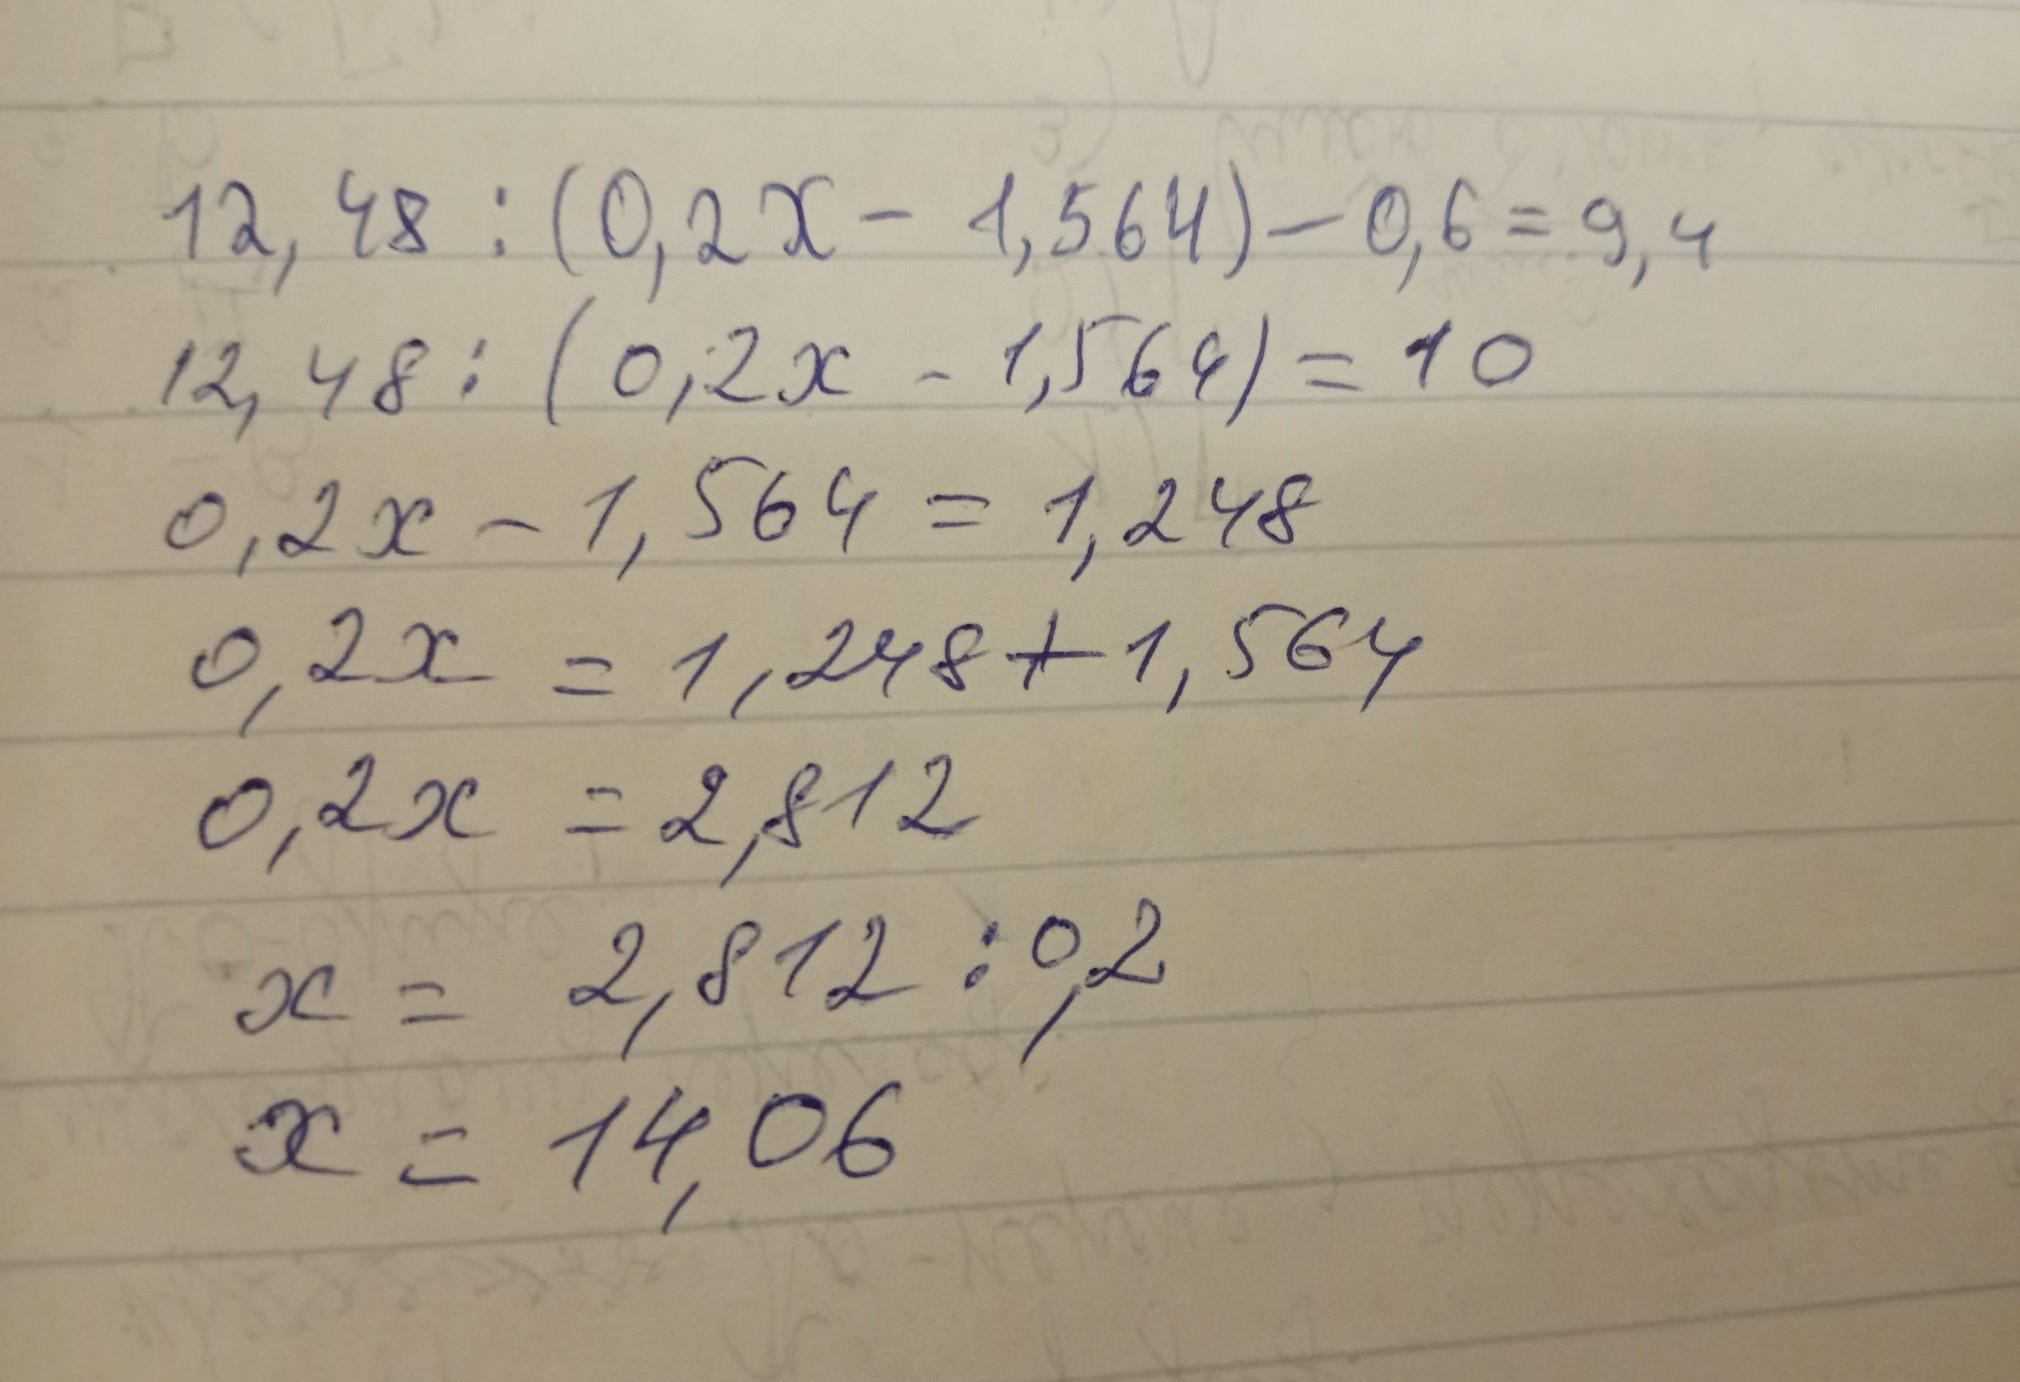 12,48 : (0,2x - 1,564) - 0,6 = 9,4
12,48 : (0,2x - 1,564) = 10
0,2x - 1,564 = 1,248
0,2x = 1,248 + 1,564
0,2x = 2,812
x = 2,812 : 0,2
x = 14,06